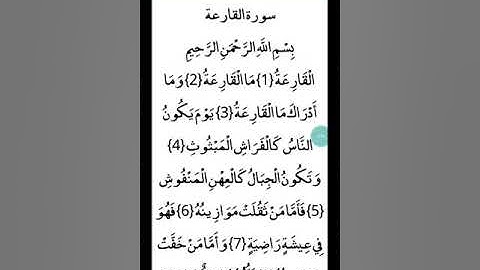 سورة القارعة
بِسْمِ اللَّهِ الرَّحْمَنِ الرَّحِيمِ
الْقَارِعَةُ {1} مَا الْقَارِعَةُ {2} وَمَا
أَدْرَاكَ مَا الْقَارِعَةُ {3} يَوْمَ يَكُونُ
النَّاسُ كَالْفَرَاشِ الْمَبْثُوثِ {4}
وَتَكُونُ الْجِبَالُ كَالْعِهْنِ الْمَنْفُوشِ
{5} فَأَمَّا مَنْ ثَقُلَتْ مَوَازِينُهُ {6} فَهُوَ
فِي عِيشَةٍ رَاضِيَةٍ {7} وَأَمَّا مَنْ خَفَّتْ